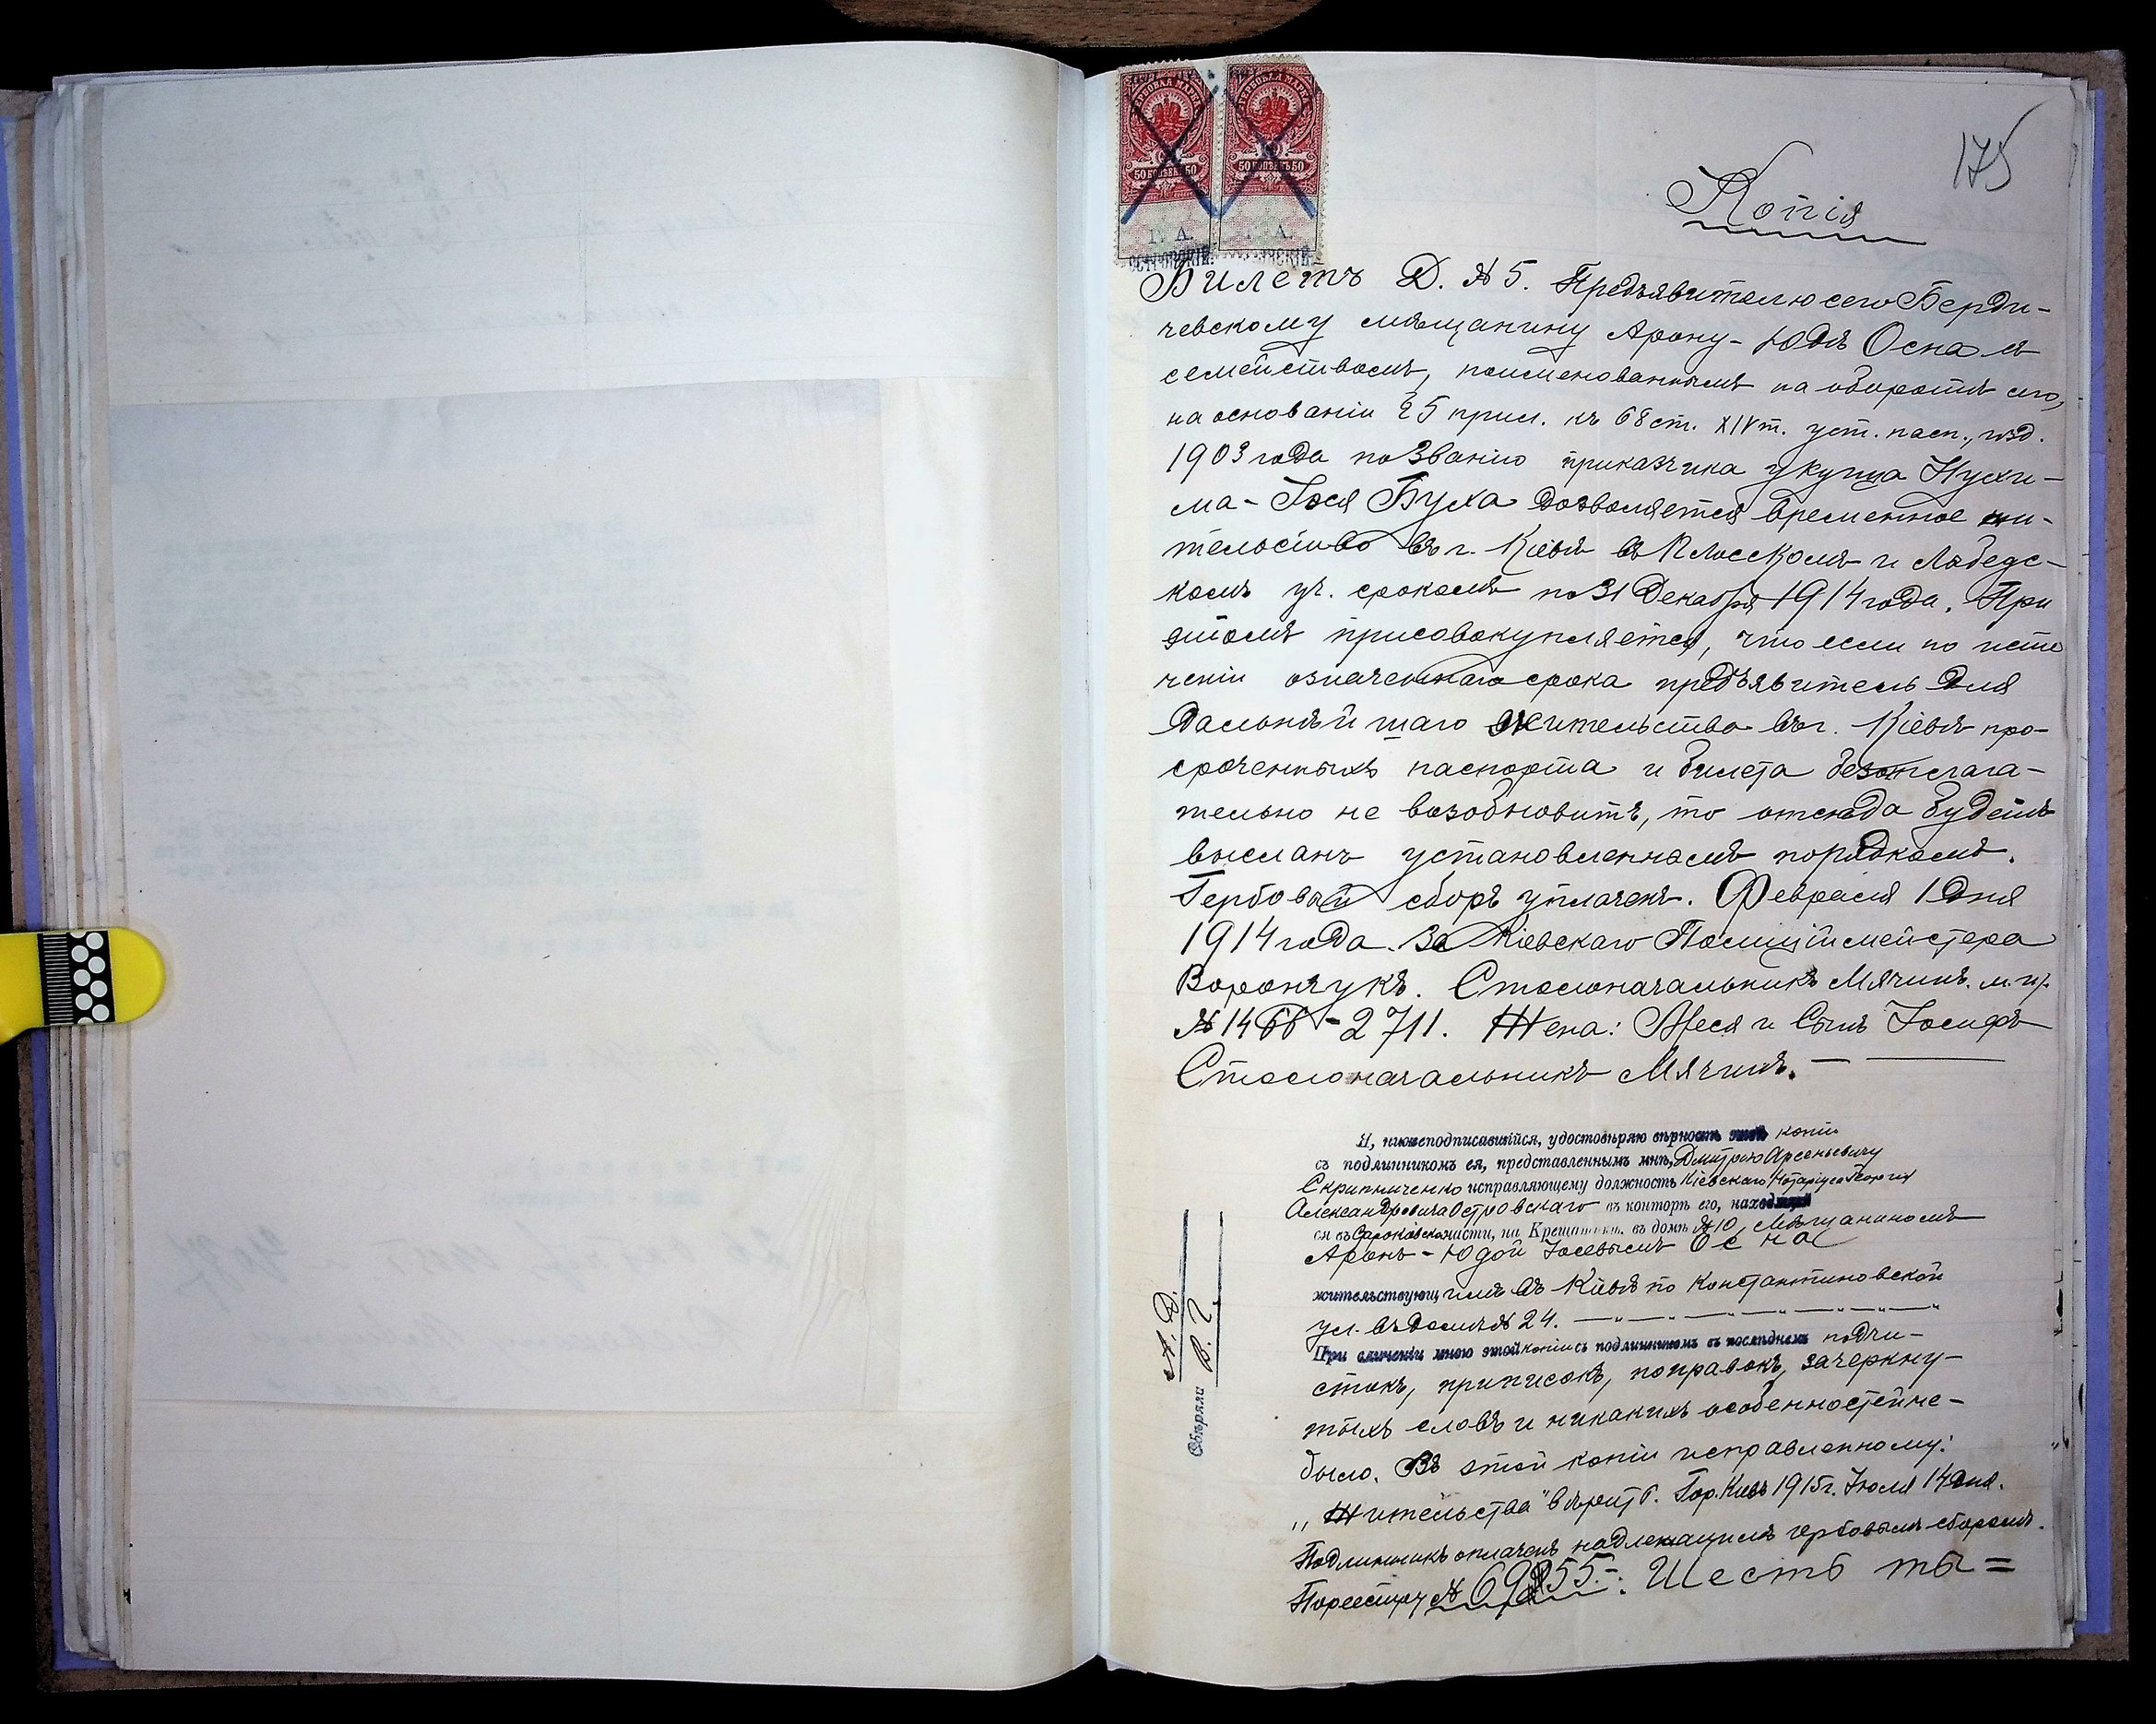 175
Копія
50 КОПѢЕКЪ 50
50 КОПѢЕКЪ 50
Билетъ Д. № 5. Предъявителю сего Берди-
чевскому мѣщанину Арону-Юдѣ Осна съ
семействомъ, поименованнымъ на оборотѣ сего,
на основаніи 25 прил. къ 68 ст. XIV т. уст. пасп., изд.
1903 года по званію приказчика у купца Нухи-
ма-Іося Буха дозволяется временное жи-
тельство въ г. Кіевѣ въ Плосскомъ и Лыбедс-
комъ уч. срокомъ по 31 Декабря 1914 года. При
этомъ присовокупляется, что если по исте
ченіи означеннаго срока предъявитель для
дальнѣйшаго жительства въ г. Кіевѣ про-
сроченныхъ паспорта и билета безотлага-
тельно не возобновитъ, то отсюда будетъ
высланъ установленнымъ порядкомъ.
Гербовый сборъ уплаченъ. Февраля 1 дня
1914 года. За Кіевскаго Полиціймейстера
Ворончукъ. Столоначальникъ Мячинъ. м. п.
№ 1466-2711. Жена: и Сынъ Іосифъ
Столоначальникъ Мячинъ.
Я, нижеподписавшійся, удостовѣряю вѣрность этой копіи
съ подлинникомъ ея, представленнымъ мнѣ, Дмитрію Арсеньевичу
Скрипниченко исправляющему должность Кіевскаго Нотаріуса Георгія
Александровича Островскаго въ конторѣ его, находящей
ся въ части, на Крещатикѣ, въ домѣ № 10, Мѣщаниномъ
Аронъ-Юдой Іосевымъ Осна
жительствующимъ въ Кіевѣ по Константиновской
ул. въ домѣ № 24.
При сличеніи мною этой копіи съ подлинникомъ въ послѣднемъ подчи-
стокъ, приписокъ, поправокъ, зачеркну-
тыхъ словъ и никакихъ особенностей не-
было. Въ этой копіи исправленному:
„Жительства" вѣрить. Гор. Кіевъ 1915 г. Іюля 14 дня.
Подлинникъ оплаченъ надлежащимъ гербовымъ сборомъ.
По реестру № Шесть ты=
Свѣряли